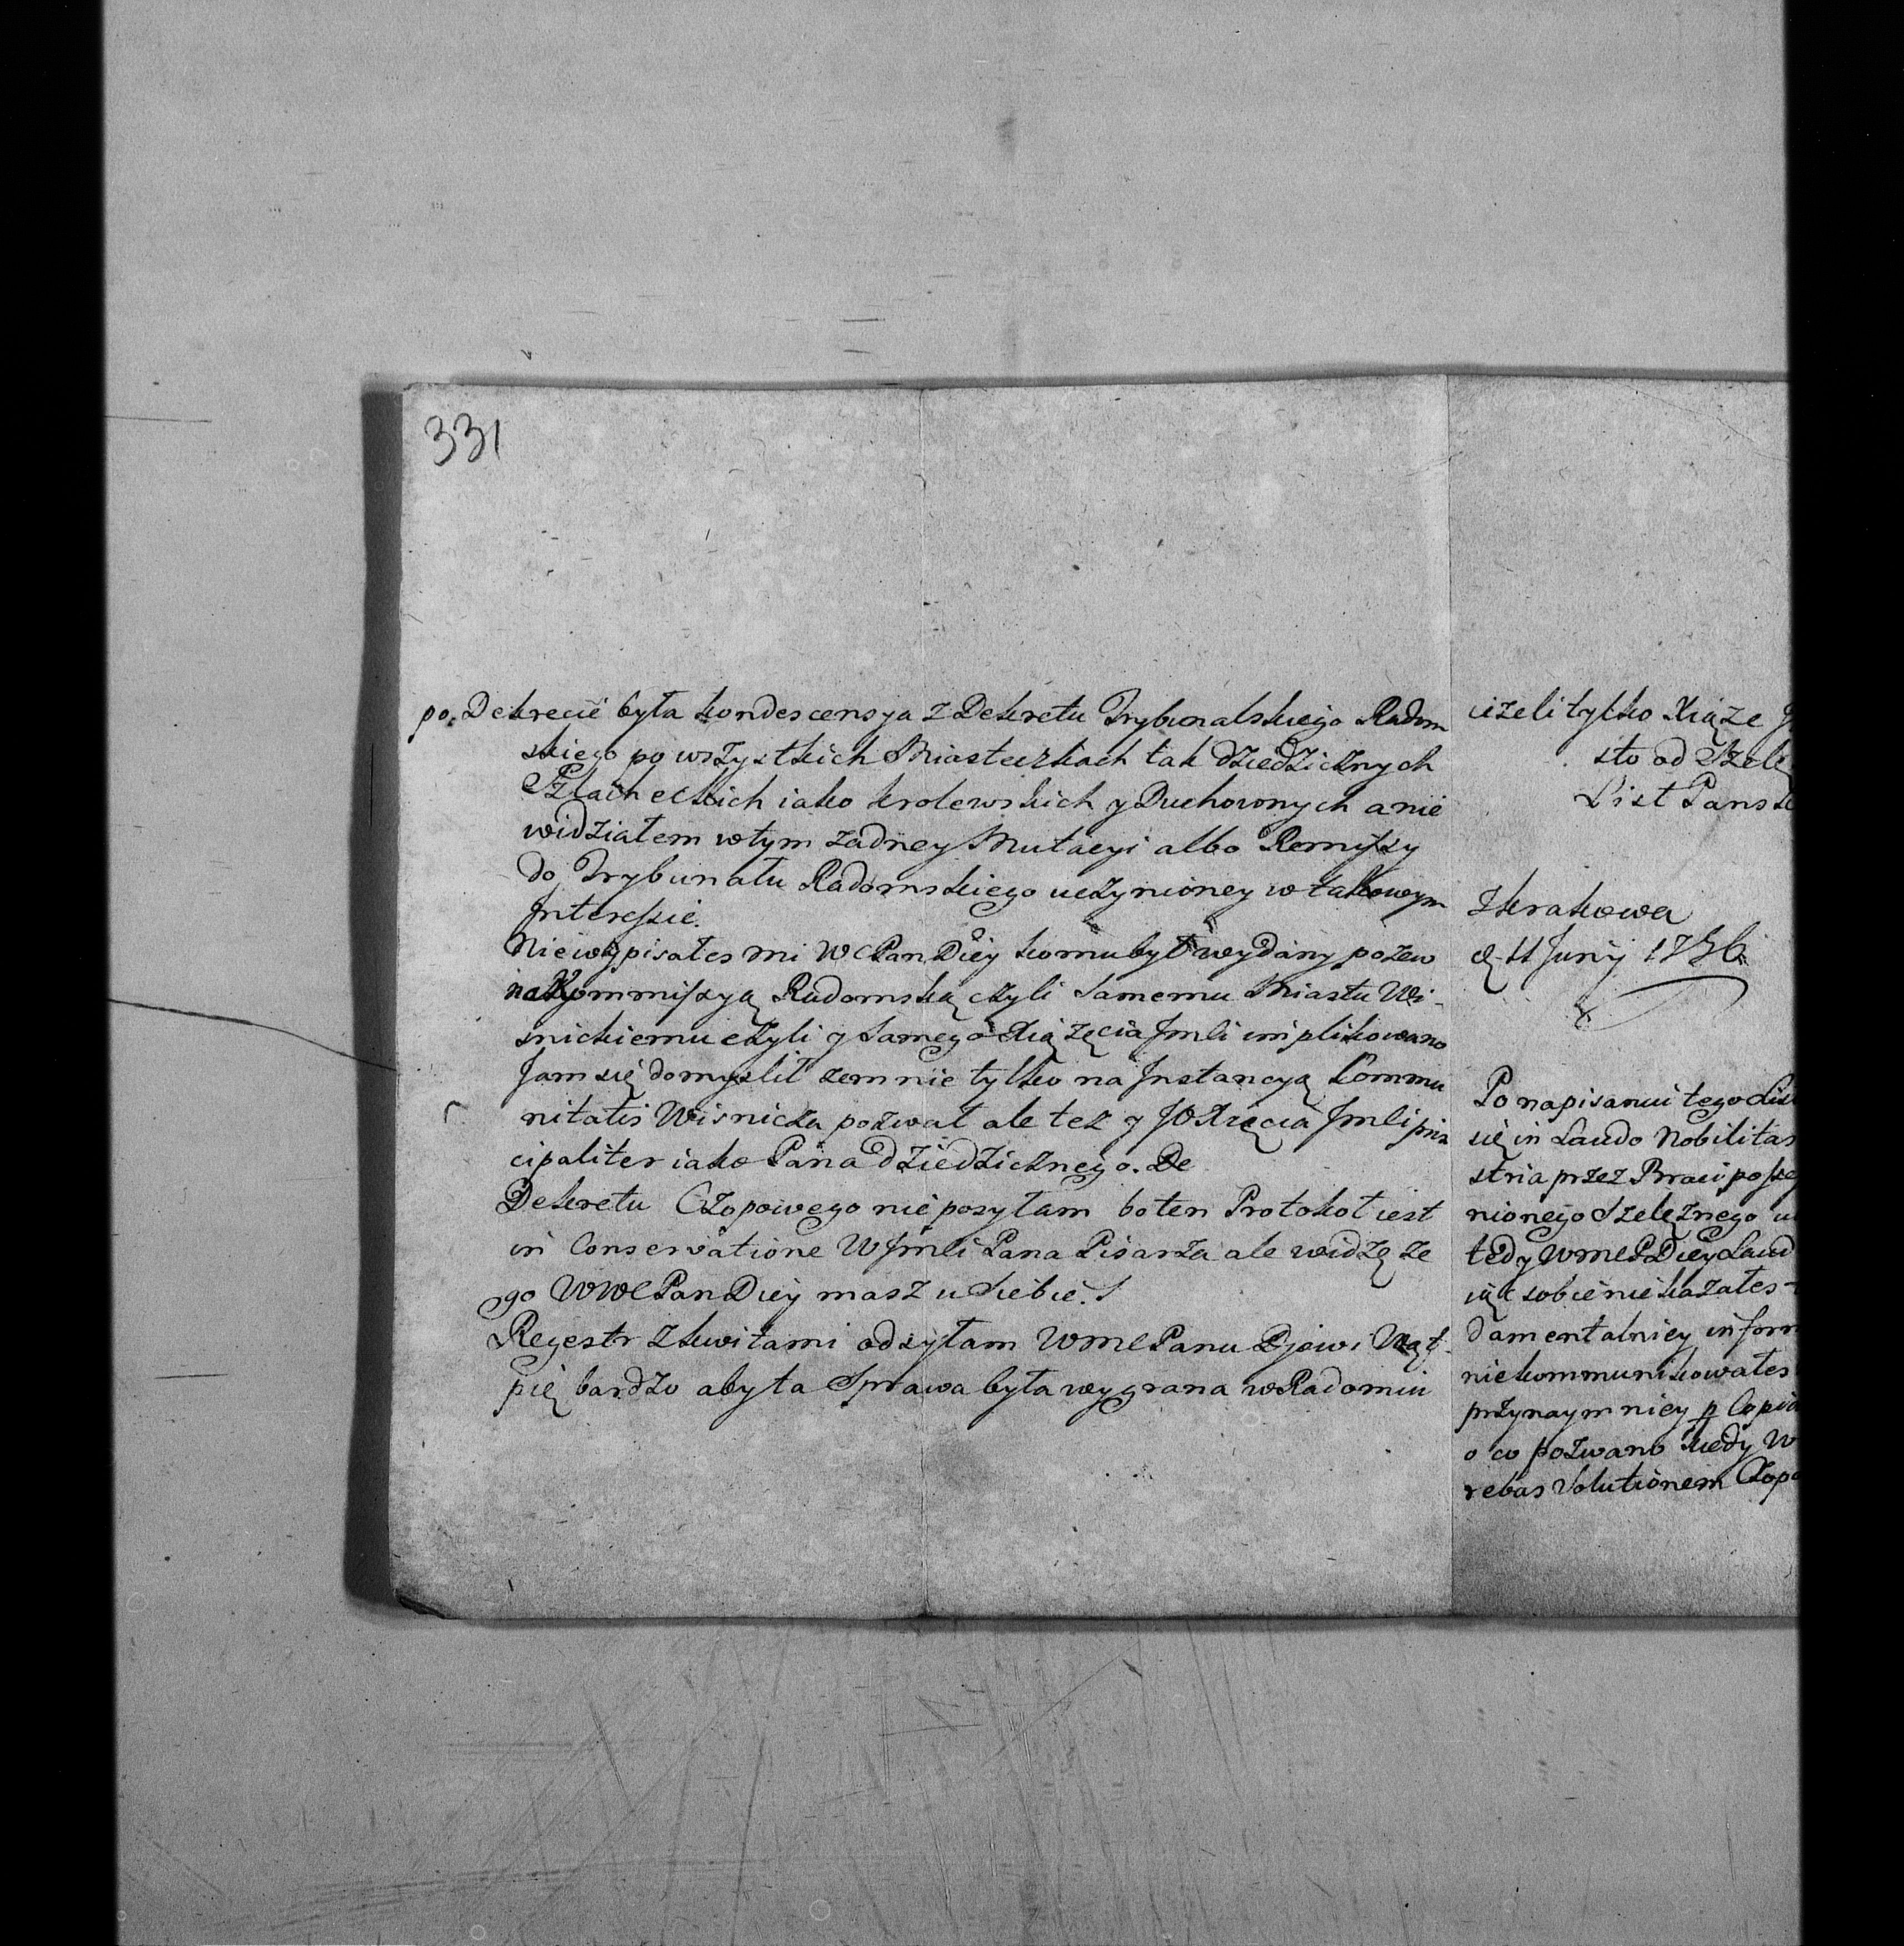 331
po. Dekrecie była kondescensya z Dekretu Trybunalskiego Radom
skiego po wszystkich Miasteczkach tak dziedzicznych
Szlacheckich iako krolewskich y Duchownych a nie
widziałem w tym zadney Mutacyi albo Remissy
do Trybunału Radomskiego uczynioney w takowym
Interessie.
Nie wypisałes mi WC Pan Diey komu był wydany pozew
na Kommissyą Radomską czyli Samemu Miastu Wi-
snickiemu czyli y Samego Xiązęcia Jmli implikowano
Jam się domyslił zem nie tylko na Instancyą Commu
nitatis Wisnicza pozwał ale tez y JO Xięcia Jmli prin
cipaliter iako Pana dziedzicznego. De
Dekretu Czopowego nie posyłam bo ten Protokoł iest
in Conservatione WJmli Pana Pisarza ale widzę ze
go WWC Pan Diey masz u Siebie.
Regestr z kwitami odsyłam WMC Panu Djowi Wąt-
pię bardzo aby ta Sprawa była wygrana w Radomiu
iezeli tylko Xiąze J
sto od Szelę
List Pansk
Z Krakowa
d. 11 Junij 1756
Po napisaniu tego List
się in Laudo Nobilitar
stria przez Braci posse
nionego Szelęznego u
tedy WMC P Diey Laud
iąć sobie nie kazałes
damentalniey inform
nie kommunikowałes
przynaymniey p Copia
o co pozwano kiedy W
rebas Solutionem Czopo